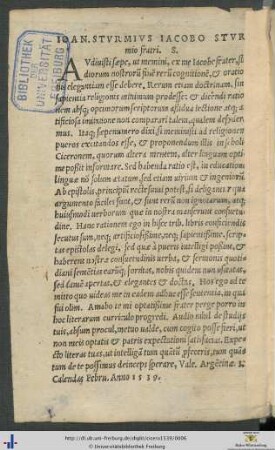 IOAN. STVRMIVS IACOBO STVR
mio fratri. S.
AVdiuisti sæpe, ut memini, ex me Iacobe frater, stu
diorum nostrorũ finẽ rerũ cognitionẽ, & oratio
nis elegantiam esse debere, Rerum etiam doctrinam, sine
sapientia religionis minimum prodesse: & dicẽdi ratio
nem absq; optimorum scriptorum assidua lectione atq; ar
tificiosa imitatione non comparari talem, qualem desydera
mus. Itaq; sæpenumero dixi si me ad religionem
pueros excitandos esse, & proponendum illis in soli
Ciceronem, quorum alter mentem, alter linguam opti
me possit informare. Sed habenda ratio est, in educatione
linguæ nõ solum ætatum, sed etiam uirium & ingeniorũ
Ab epistolis principiũ rectè sumi potest, si deligantur quæ
argumento faciles sunt, & sunt rerũ non ignotarum, atq;
huiusmodi uerborum quæ in nostra manserunt consuetu
dine. Hanc rationem ego in his tribus libris conficiendis
secutus sum, neq; artificiosissimas, neq; sapientissime, scrip
tas epistolas delegi, sed quæ à pueris intelligi possint, &
haberent nostræ consuetudinis uerba, & sermonis quotid
diani semotas earũq;
sed tamẽ apertas, & elegantes & doctas, Hos ego ad te
mitto quo uideas me in eadem adhuc esse sententia, in qua
fui olim. Amabo te mi optatissime frater perge porro in
hoc literarum curriculo progredi. Audio nihil de studijs
tuis, absum procul, metuo ualde, cum cogito posse fieri, ut
non meis optatis & patris expectationi satisfacias. Expe
cto literas tuas, ut intelligã tum quid profeceris, tum quãtũ
tum de te possimus deinceps sperare, Vale. Argẽtinæ.
Calendas Febru. Anno 1539.
UNIVERSITÄTS
FREIBURG
http://dl.ub.uni-freiburg.de/diglit/cicero1539/0006
© Universitätsbibliothek Freiburg
Baden-Württemberg